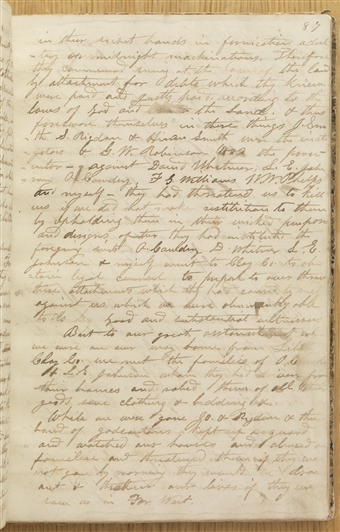 87
in their secret bands in fornication adul
tery & midnight machinations. Therefore
they commenced suing at the
by attachment for debts which they knew
were paid and justly paid according to the
laws of God and the land. & thus
foreswore themselves in these things J. Smith
S. Rigdon & Hiram Smith were the insti
gators & G. W. Robinson was the
against David Whitmer, L. E. John
son O. Cowdery F. G. Williams W. W. Phelps
and myself. they had threatened us to kill
us if we did not make restitution to them
by upholding them in their wicked purposes
and designs. after they had instituted the
foregoing suit O. Cowdery D. Whitmer L. E.
Johnson & myself went to Clay Co. to ob
tain legal counsel to prepare to over throw
these attachments which they had caused
against us which we were abundantly able
to do by good and substantial witnesses
But to our great astonishment when
we were on our way home from
Clay Co. we met the families of O. C.
& L. E. Johnson whom they had driven from
their houses and robed them of all their
goods save clothing & bedding &c.
While we were gone Jo. & Rigdon & their
band of gadeantons kept up a guard
and watched our houses and abused our
families and threatened them if they were
not gone by morning they would be drove
out & threatened our lives if they ever
saw us in Far West.